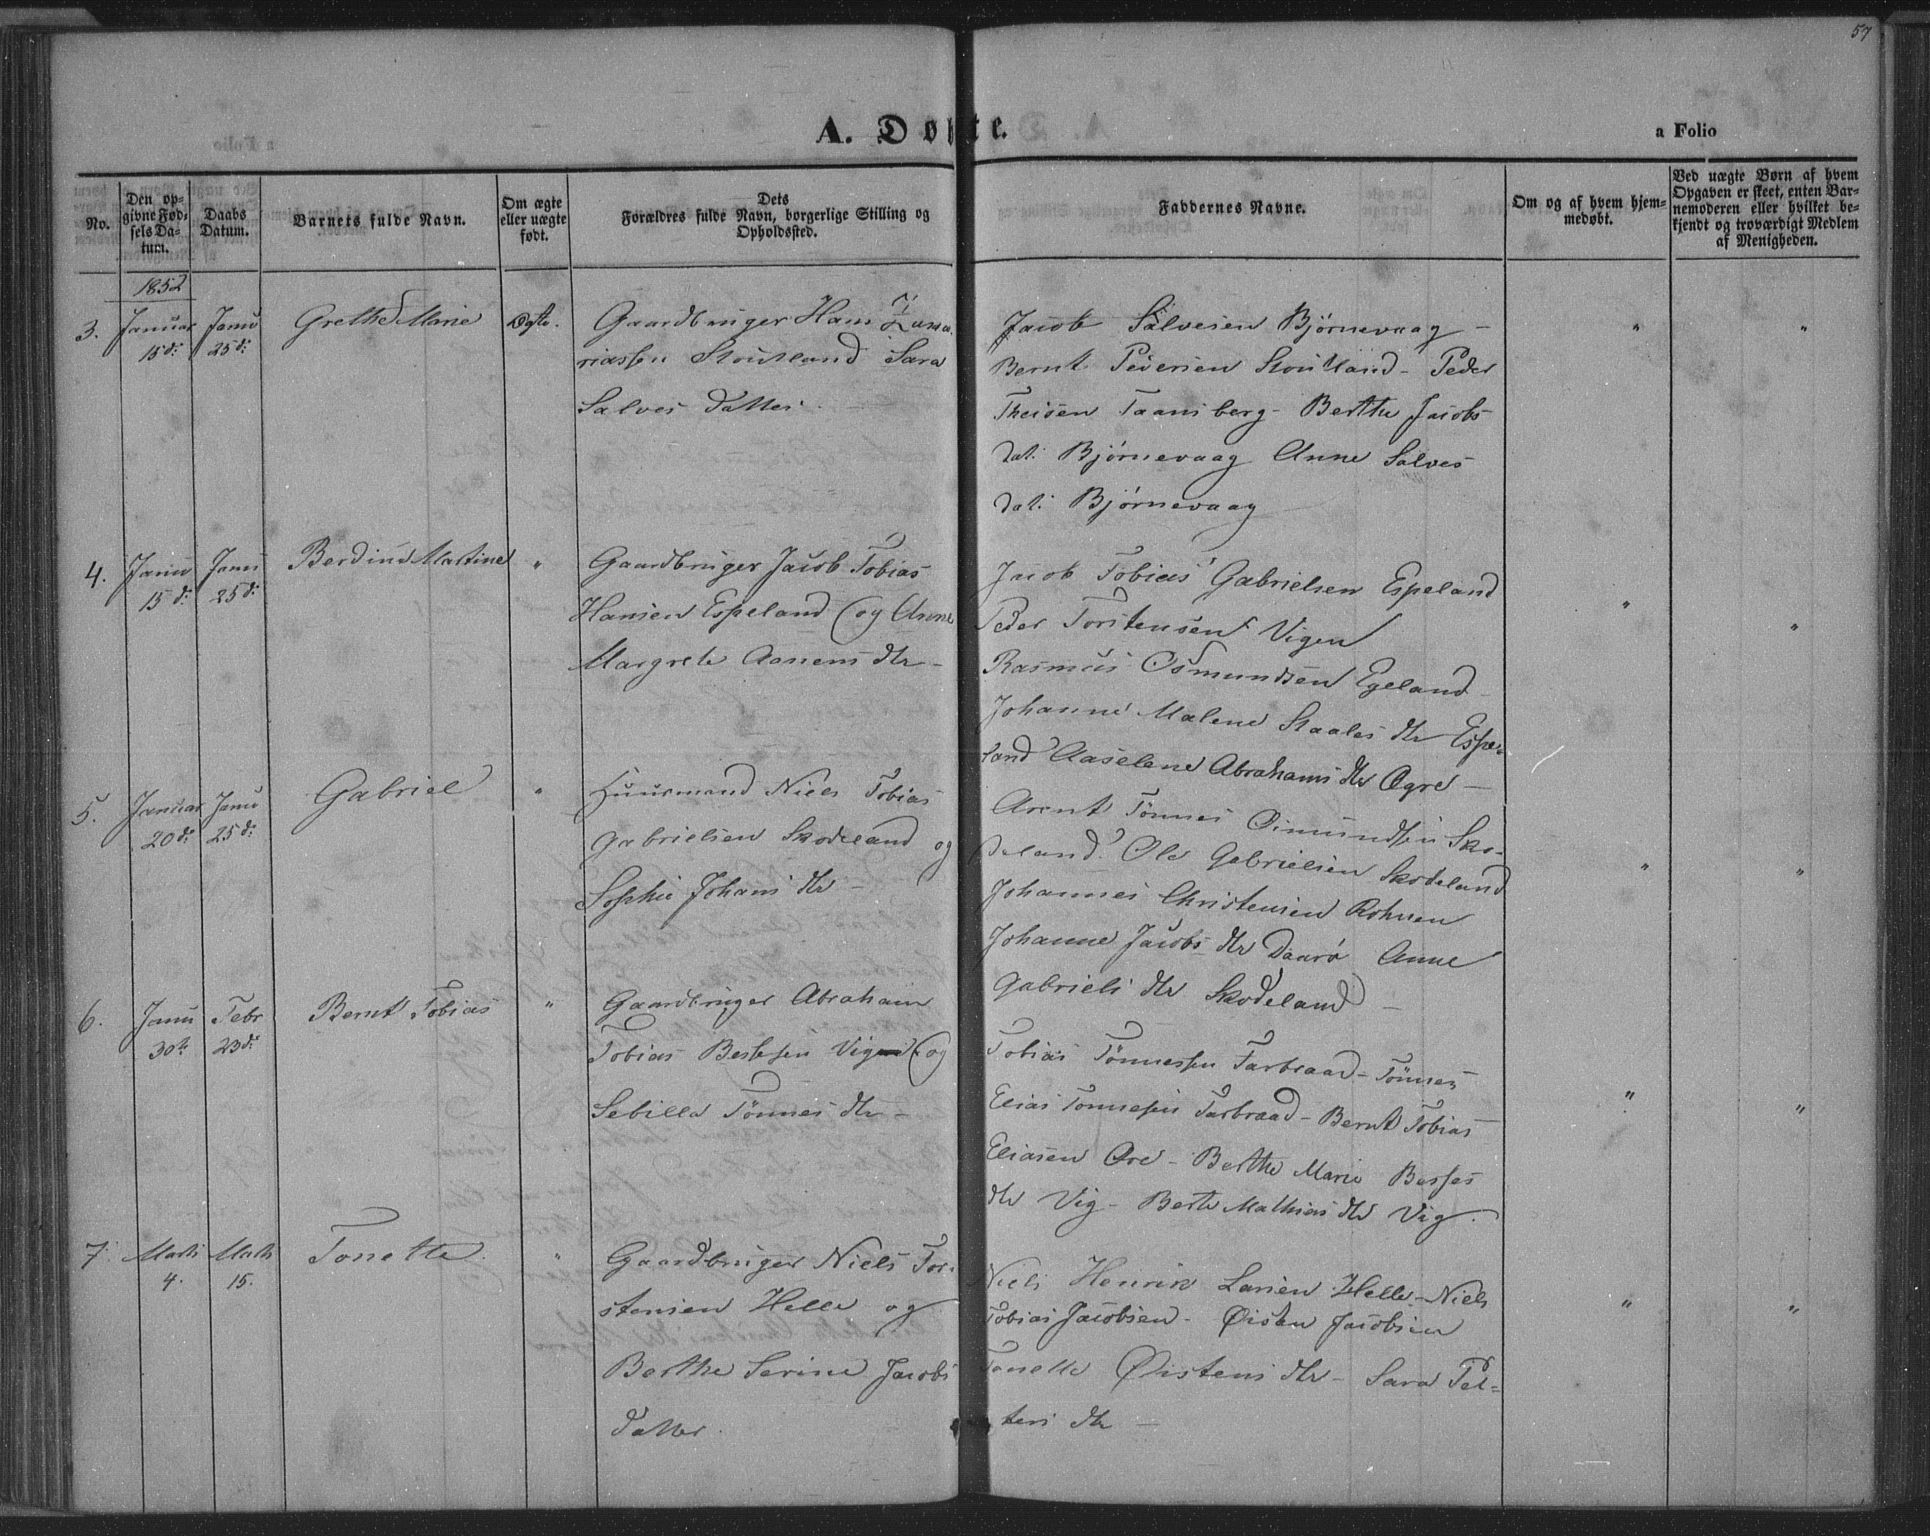 57
A. Døbte.
a Folio
No.
Den op-
givne Fød-
sels Da-
tum.
Daabs
Datum.
Barnets fulde Navn.
Om ægte
eller uægte
født.
Dets
Forældres fulde Navn, borgerlige Stilling og
Opholdssted.
Faddernes Navne.
Om og af hvem hjem-
medøbt.
Ved uægte Børn af hvem
Opgaven er skeet, enten Bar-
nemoderen eller hvilket be-
kjendt og troværdigt Medlem
af Menigheden.
1852
3. Januar 15de Janu 25de Grethe Marie Ægte.
Gaardbruger Hans Zacha
riassen Skoutland Sara
Salves Datter.
Jacob Salvesen Bjørnevaag –
Bernt Pedersen Skoutland – Peder
Theisen Taansberg – Berthe Jacobs
dat: Bjørnevaag Anne Salves
dat: Bjørnevaag
" "
4. Janu 15de Janu 25de Berdine Martine "
Gaardbruger Jacob Tobias
Hansen Espeland (og Anne
Margrete Aanens dtr –
Jacob Tobias Gabrielsen Espeland
Peder Torstensen Vigen
Rasmus Osmundsen Egeland –
Johanne Malene Staales dtr Espe-
land Aaselene Abrahams dtr Øgre –
" "
5. Januar 20de Janu 25de Gabriel "
Huusmand Niels Tobias
Gabrielsen Skodeland og
Sophie Johans dtr –
Arent Tønnes Osmundsen Sko-
deland. Ole Gabrielsen Skodeland
Johannes Christensen Rohnen
Johanne Jacobs dtr Daarø Anne
Gabriels dtr Skodeland –
" "
6. Janu 30te Febr 23de Bernt Tobias "
Gaardbruger Abraham
Tobias Bessesen Vigen (og
Sebille Tønnes dtr –
Tobias Tønnessen Farbraad – Tønnes
Elias Tønnesen Farbraad – Bernt Tobias
Eliasen Øre – Berthe Marie Besses
dtr Vig – Berte Mathias dtr Vig.
" "
7. Marts 4. Marts 15. Tonette "
Gaardbruger Niels Tor-
stensen Helle og
Berthe Serine Jacobs
datter.
Niels Henrik Larsen Helle – Niels
Tobias Jacobsen – Øisten Jacobsen
Tonette Øistens dtr – Sara Pet-
ters dtr –
" "